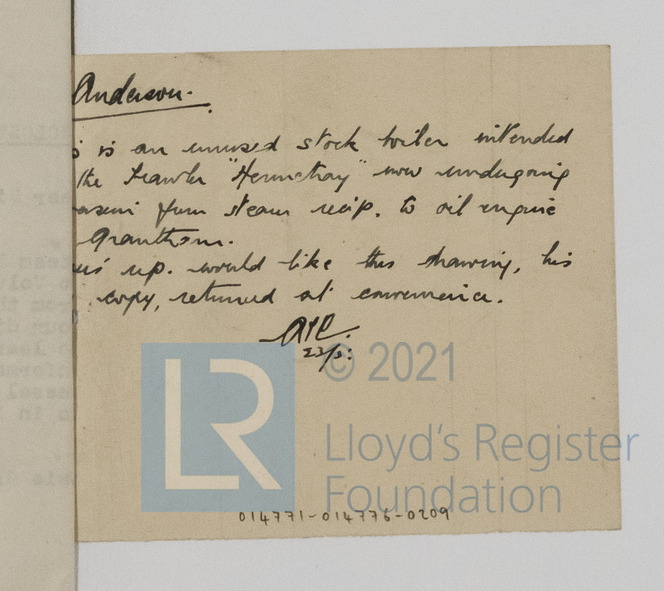 Anderson.
is an unused stock boiler intended
the trawler "Hennetray" now undergoing
from steam recip. to oil engine
Granthom.
up. would like this drawing, his
copy, returned at convenience.
22/5:
© 2021
LR
Lloyd's Register
Foundation
014771-014776-0209